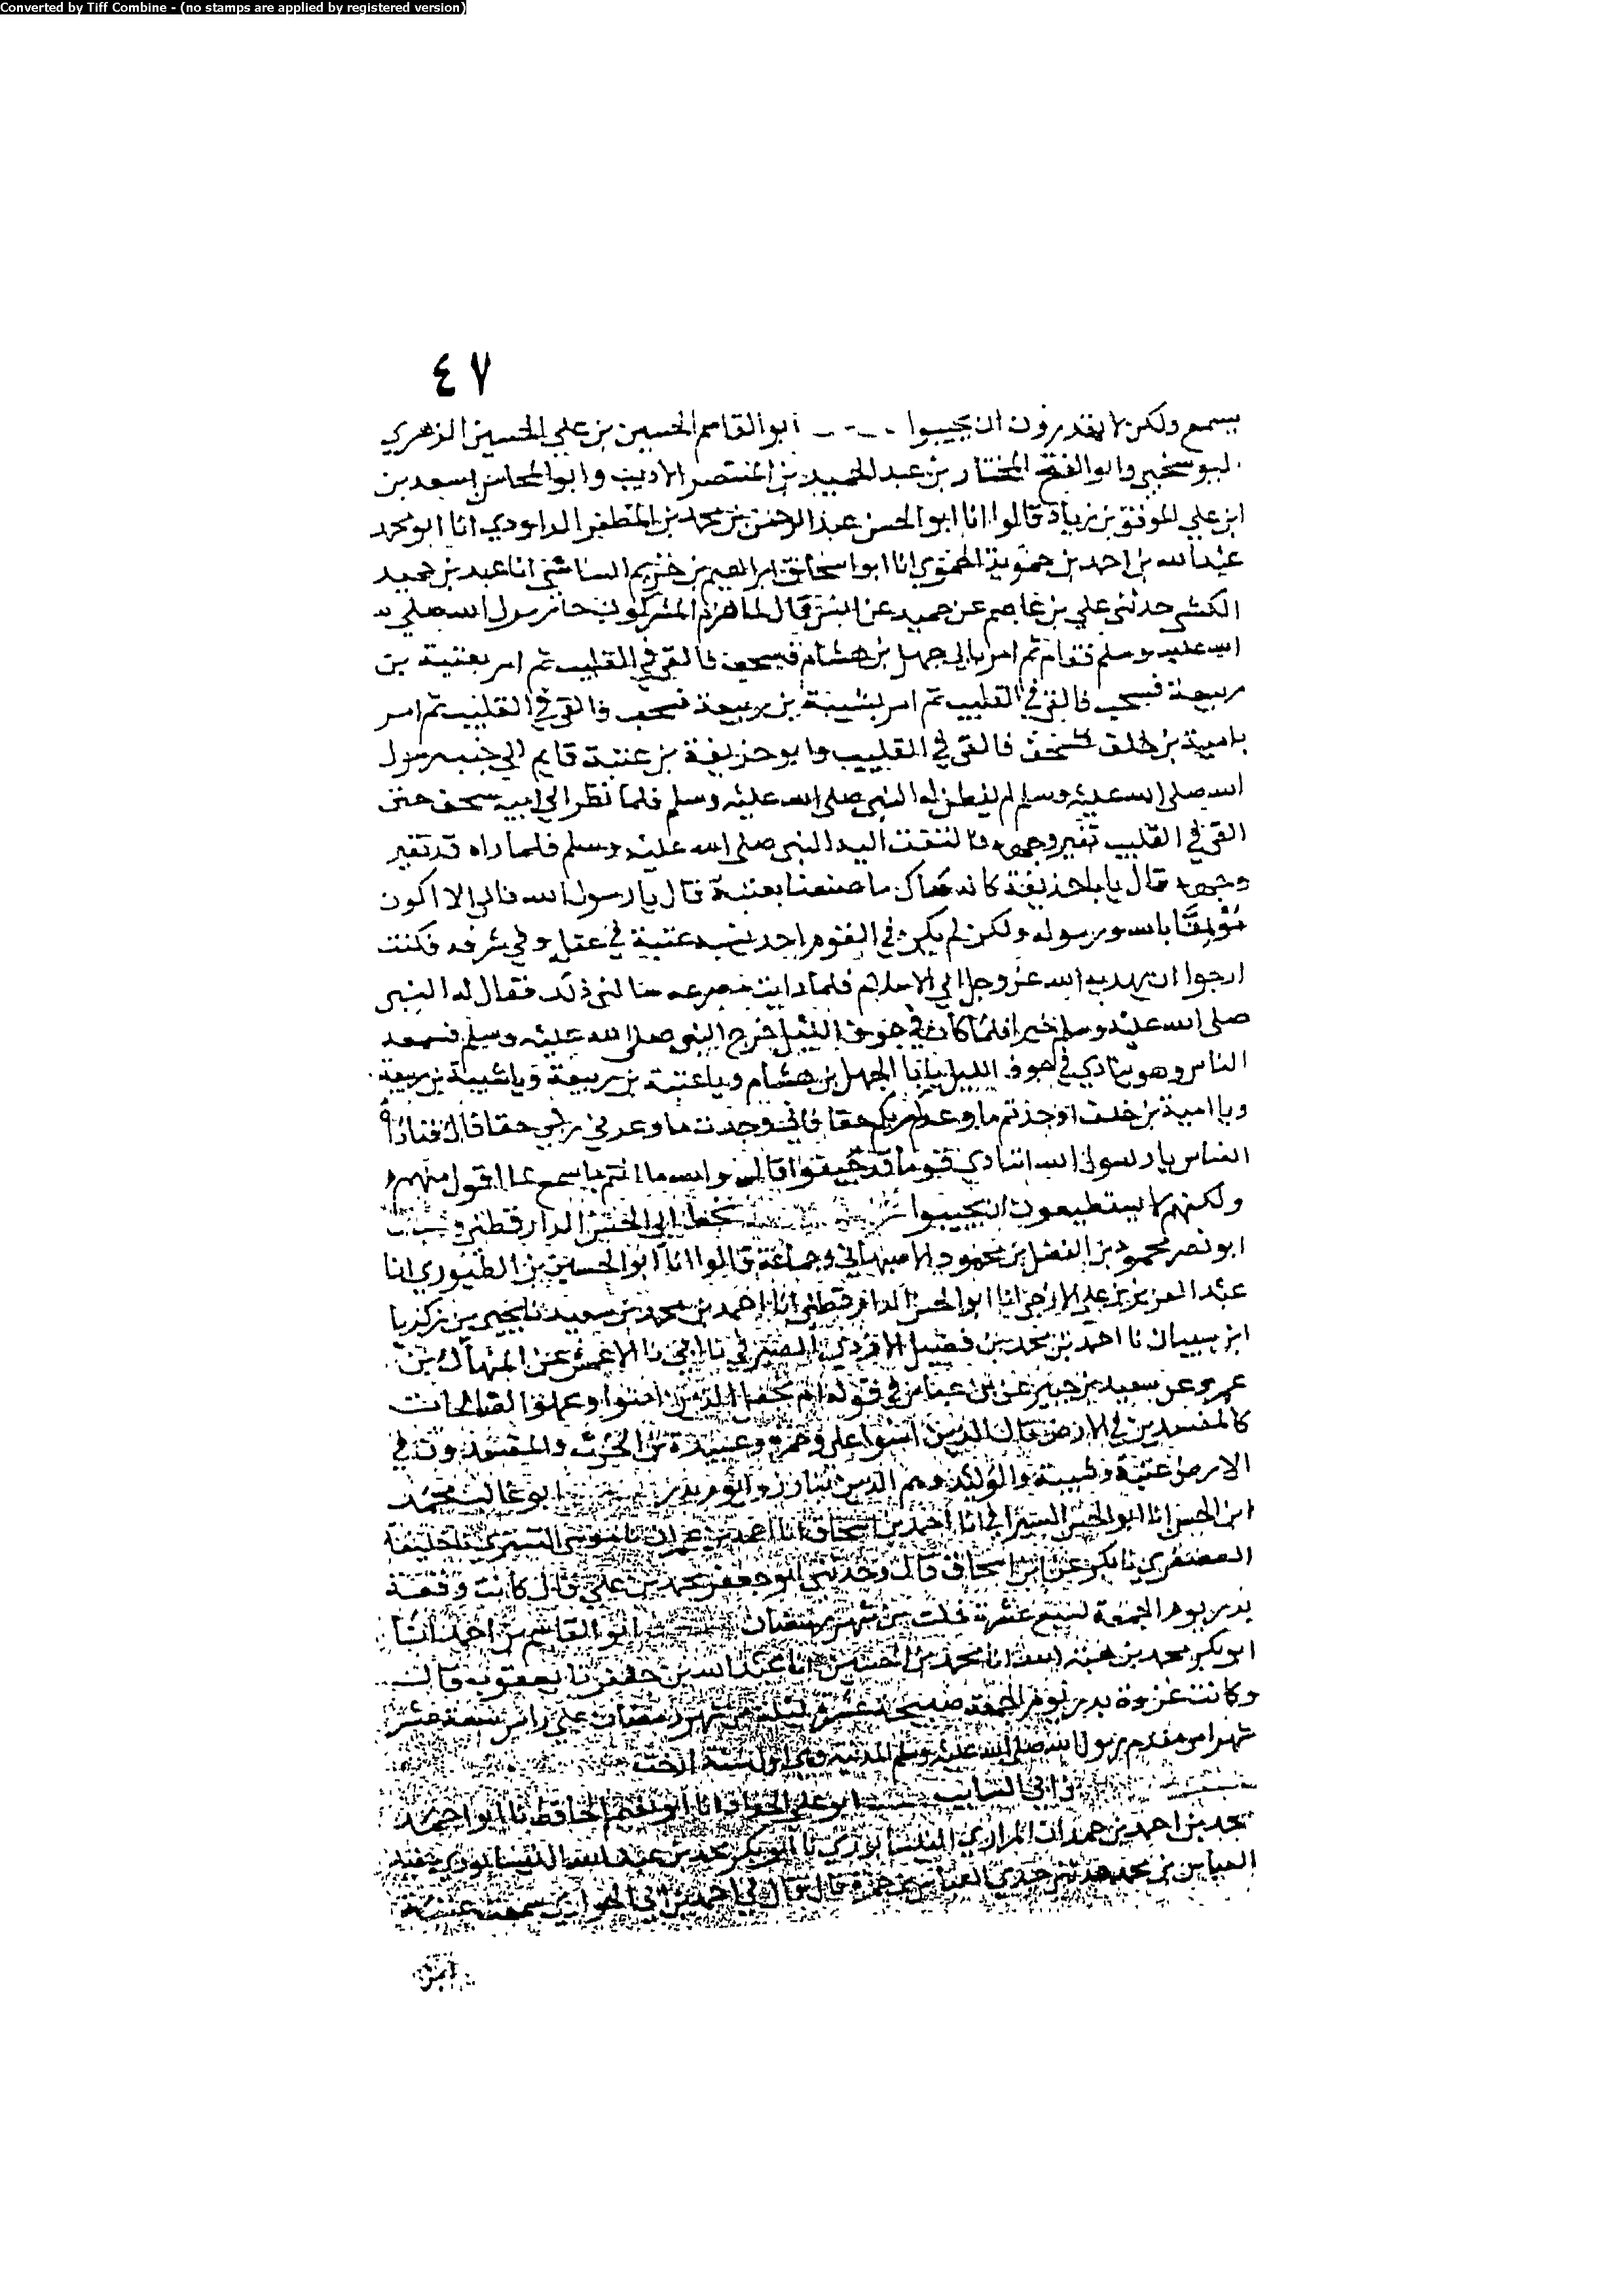 Converted by Tiff Combine - (no stamps are applied by registered version)
٤٧
يسمع ولكن لا يقدرون ان يجيبوا ابو القاسم الحسين بن علي الحسين الزهري
وابو الفتح المختار بن عبد الحميد بن المنتصر الاديب وابو المحاسن اسعد بن
ابن علي الموفق بن زياد قالوا انا ابو الحسن عبد الرحمن بن محمد بن المظفر الداودي انا ابو محمد
عبد الله بن احمد بن حمويه الحموي انا ابو اسحاق ابراهيم بن خزيم الشاشي انا عبد بن حميد
الكشي حدثني علي بن عاصم عن حميد عن انس قال لما هزم المشركون رسول الله صلى
الله عليه وسلم فقام ثم امر بابي جهل بن هشام فسحب فالقي في القليب ثم امر بعتبة بن
ربيعة فسحب فالقي في القليب ثم امر بشيبة بن ربيعة فسحب فالقي في القليب ثم امر
بامية بن خلف فسحب فالقي في القليب وابو حذيفة بن عتبة قايم الي جنب رسول
الله صلى الله عليه وسلم لم يفطن له النبي صلى الله عليه وسلم فلما نظر الي ابيه سحب حتى
القي في القليب تغير وجهه فالتفت اليه النبي صلى الله عليه وسلم فلما راه قد تغير
وجهه قال يا با حذيفة كانه ساك ما صنعنا بعتبة قال يا رسول الله مالي الا اكون
مؤمنا بالله ورسوله ولكن لم يكن في القوم احد يشبه عتبة في عقله وفي شرفه فكنت
ارجوا ان يهديه الله عز وجل الي الاسلام فلما رايت مصرعه سالني ذلك فقال له النبي
صلى الله عليه وسلم خيرا فلما كان في جوف الليل خرج النبي صلى الله عليه وسلم فسمعه
الناس وهو ينادي في جوف الليل يا با الجهل بن هشام ويا عتبة بن ربيعة ويا شيبة بن ربيعة
ويا امية بن خلف اوجدتم ما وعدكم ربكم حقا فاني وجدت ما وعدني ربي حقا قال فناداه
الناس يا رسول الله اتنادي قوما قد جيفوا قال والله ما انتم باسمع لما اقول منهم
ولكنهم لا يستطيعون ان يجيبوا بخط ابي الحسن الدارقطني
ابو نصر محمود بن الفضل بن محمود الاصبهاني وجماعة قالوا انا ابو الحسين بن الطيوري انا
عبد العزيز بن علي الازجي انا ابو الحسن الدارقطني انا احمد بن محمد بن سعيد نا يحيى بن زكريا
ابن شيبان نا احمد بن محمد بن فضيل الازدي نا ابي نا الاعمش عن المنهال بن
عمرو عن سعيد بن جبير عن بن عباس في قوله ام نجعل الذين امنوا وعملوا الصالحات
كالمفسدين في الارض قال الذين امنوا علي وحمزة وعبيدة بن الحرث والمفسدون في
الارض عتبة وشيبة والوليد وهم الذين تبارزوا يوم بدر ابو غالب محمد
ابن الحسن انا ابو الحسن السيرافي انا احمد بن اسحاق انا احمد بن عمران نا موسى التستري نا خليفة
العصفري نا بكر عن ابن اسحاق قال وحدثني ابو جعفر محمد بن علي قال كانت وقعة
بدر يوم الجمعة لسبع عشرة خلت من شهر رمضان ابو القاسم بن احمد انا
ابو بكر محمد بن هبة الله انا محمد بن الحسين انا عبد الله بن جعفر نا يعقوب قال
وكانت غزوة بدر يوم الجمعة صبيحة عشرة ليلة من شهر رمضان على راس سبعة عشر
شهرا من مقدم رسول الله صلى الله عليه وسلم المدينة
ابو علي الحداد انا ابو نعيم الحافظ نا ابو احمد
محمد بن احمد بن حمدان النيسابوري نا ابو بكر محمد بن عبد الله النيسابوري
العباس بن محمد حدثني جدي العباس بن حمزة قال قال لي احمد بن ابي الحواري سمعت